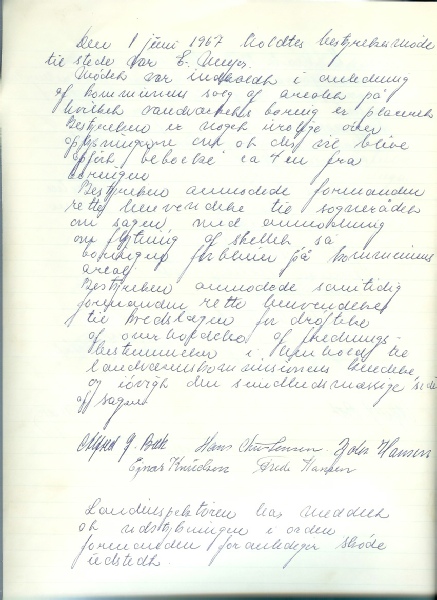 Den 1 juni 1967 holdtes bestyrelsesmøde
til stede var E. Meyer.
Mødet var indkaldt i anledning
af kommunens salg af arealet på
hvilket vandværkets boring er placeret
Bestyrelsen er noget urolige over
oplysningerne om at der vil blive
opført bebo ca 4 m fra
boringen
Bestyrelsen anmodede formanden
rette henvendelse til sognerådet
om sagen med anmodning
om flytning af skellet så
boringen forbliver på kommunens
areal
Bestyrelsen anmodede samtidig
formanden rette henvendelse
til Kredslægen for drøftelse
af overholdelse af frednings-
bestemmelser i henhold til
landvæsenskommissionens kendelse
og iøvrigt den sundhedsmæssige side
af sagen
Alfred J. Bak Hans Hansen
Ejnar Knudsen Frede Hansen
Landinspektøren har meddelt
at udstykningen i orden
formanden foranlediger skøde
udstedt.